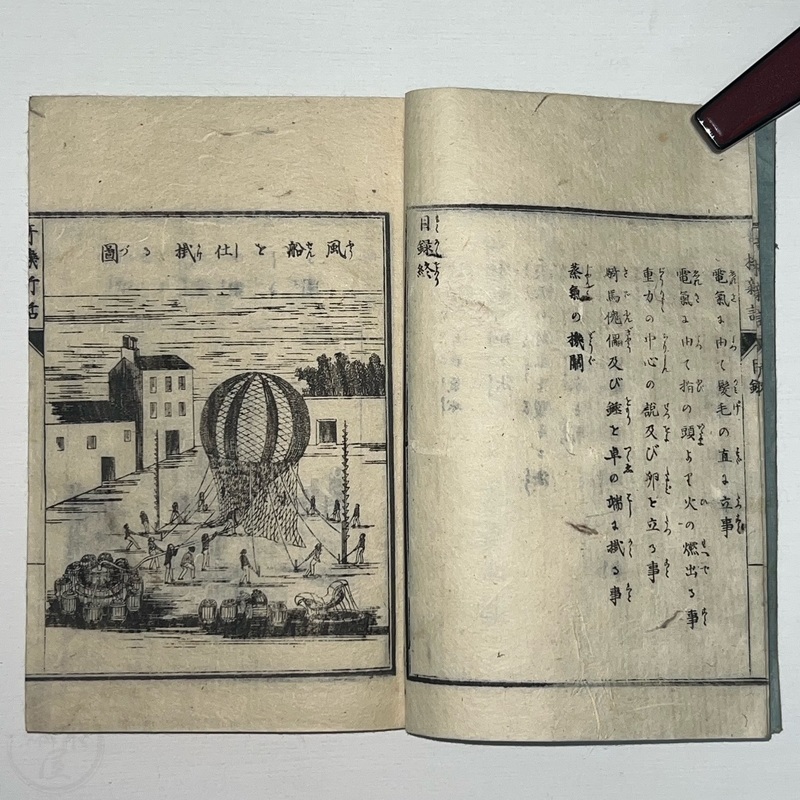 電氣に由て髪毛の直に立事
電氣に由て指の頭より火の燃出る事
重力の中心の説及び卵を立る事
騎馬傀儡及び錘を卓の端に掛る事
蒸氣の機關
目録終
風船を仕掛る圖